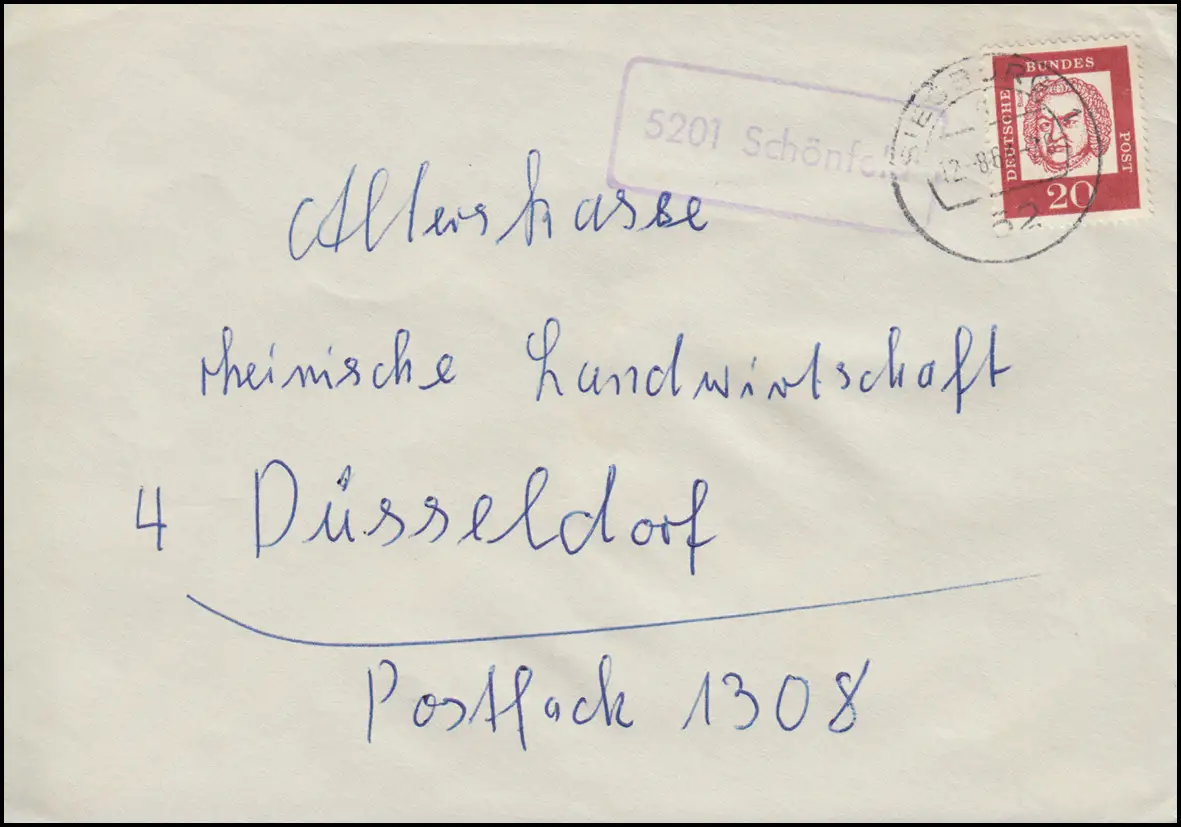 5201 Schönfeld
SIEGBURG
52
DEUTSCHE BUNDES POST
20
Alterskasse
rheinische Landwirtschaft
4 Düsseldorf
Postfach 1308